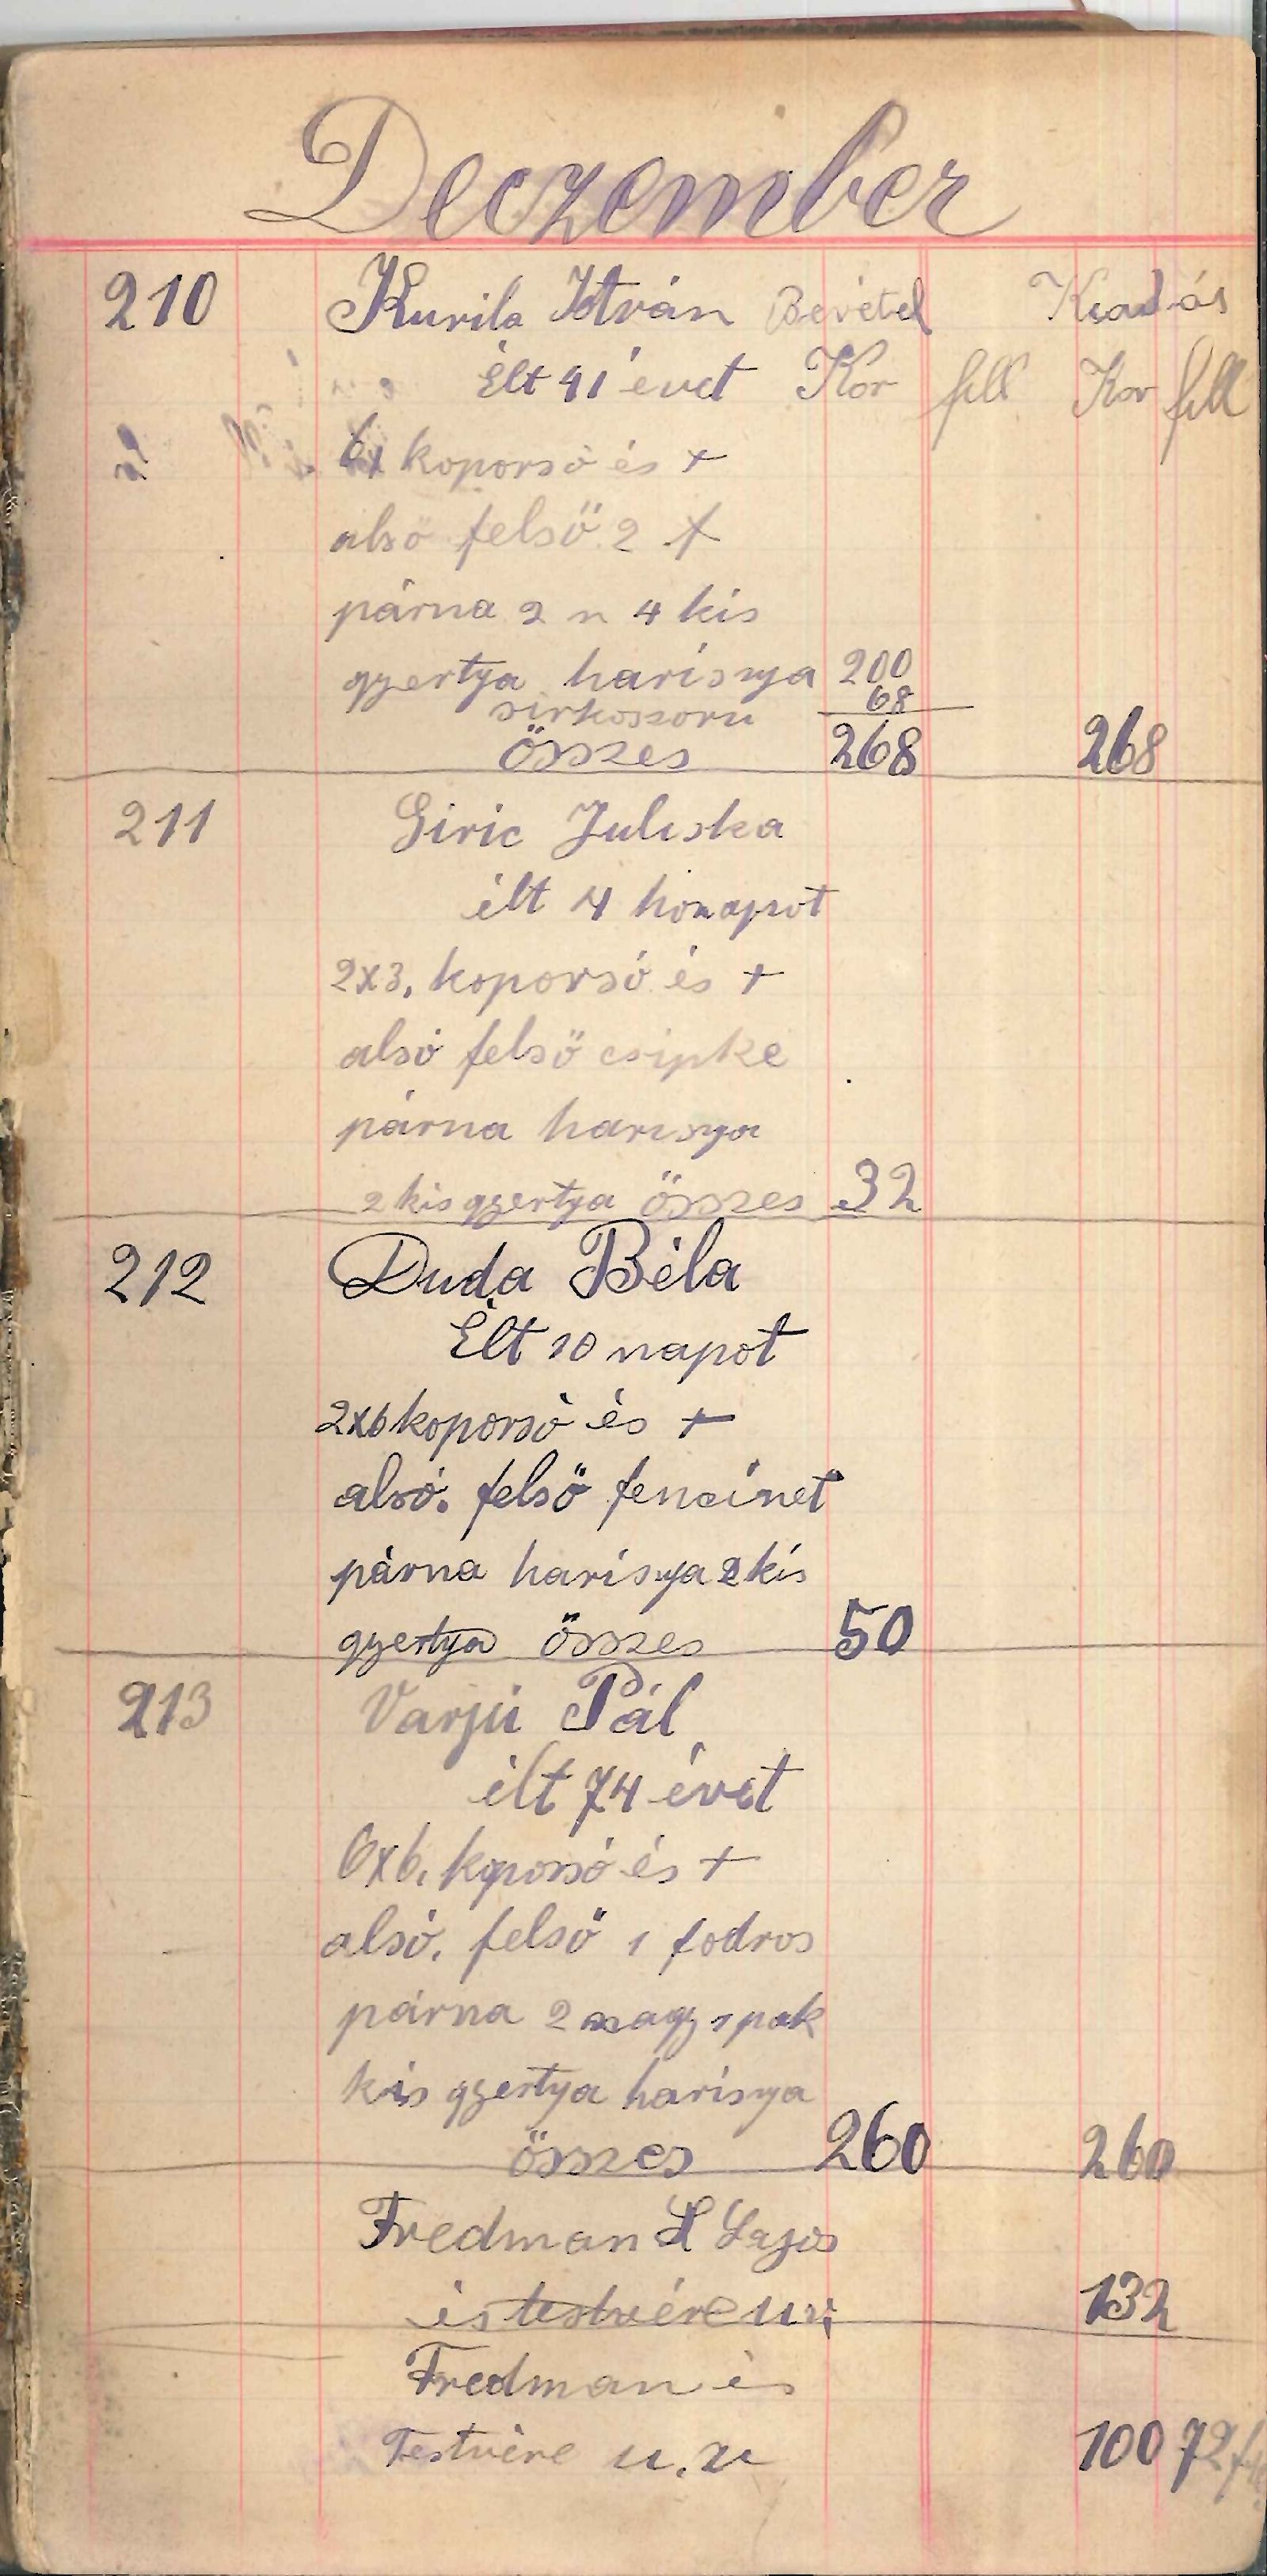 Deczember
210 Kurila István Bevétel Kiadás
Élt 41 évet Kor fill Kor fill
6x koporsó és +
alsó felső 2 f
párna 2 n 4 kis
gyertya harisnya 200
sirkoszoru 68
összes 268 268
211 Giric Juliska
élt 4 honapot
2x3, koporsó és +
alsó felső csipke
párna harisnya
2 kis gyertya összes 32
212 Duda Béla
Élt 10 napot
2x6 koporsó és +
alsó. felső
párna harisnya 2 kis
gyertya összes 50
213 Varjú Pál
élt 74 évet
6x6, koporsó és +
alsó, felső 1 fodros
párna 2 nagy 1 pak
kis gyertya harisnya
összes 260 260
Fredman L Lajos
és testvére 132
Fredman és
Testvére 100 72 f